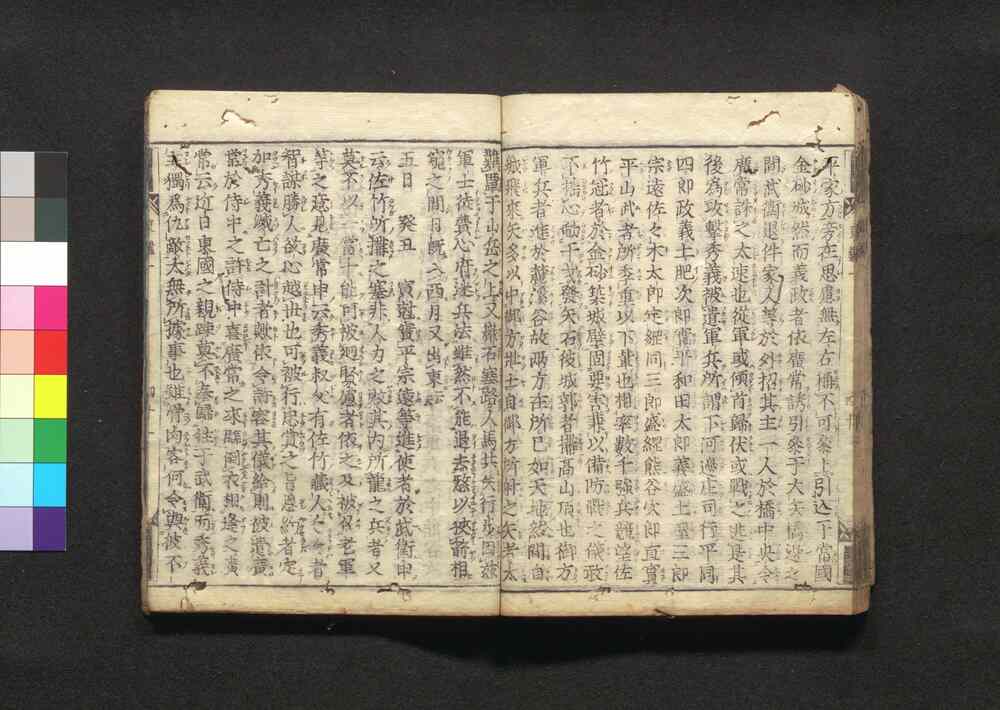 平家方旁在思慮無左右稱不可參上引込于當國
金砂城然而義政者依廣常誘引參于大矢橋邊之
間武衞退件家人等於外招其主一人於橋中央令
廣常誅之太速也從軍或傾首歸伏或戰之逃其
後為攻擊秀義被遣軍兵所謂下河邊庄司行平同
四郎政義土肥次郎實平和田太郎義盛土屋三郎
宗遠佐々木太郎定綱同三郎盛綱熊谷次郎直實
平山武者所季重以下輩也相率數千強兵競
竹冠者於金砂築城壁固要害兼以備防戰之儀敢
不搖心動干戈發矢石彼城郭者搆高山頂也御方
軍兵者進於麓溪谷故兩方在所已如天地然間自
城飛來矢多以中御方壯士自御方所射之矢者太
難覃于山岳之上又嚴石塞路人馬共失行步因茲
軍士徒費心府迷兵法雖然不能退去憖以挾箭相
窺之間日既入西月又出東云々
五日　癸丑　寅尅實平宗遠等進使者於武衞申
云佐竹所搆之塞非人力之可敗其內所籠之兵者又
莫不以一當千能可被廻賢慮者依之及被召老軍
等之意見廣常申云秀義叔父有佐竹藏人々々者
智謀勝人欲心越世也可被行恩賞之旨恩約者定
加秀義滅亡之計者歟依令許容其儀給則被遣廣
常於侍中之許侍中喜廣常之來臨倒衣相逢之廣
常云近日東國之親踈莫不奉歸往于武衞而秀義
主獨爲仇敵太無所據事也雖骨肉客何令與彼不